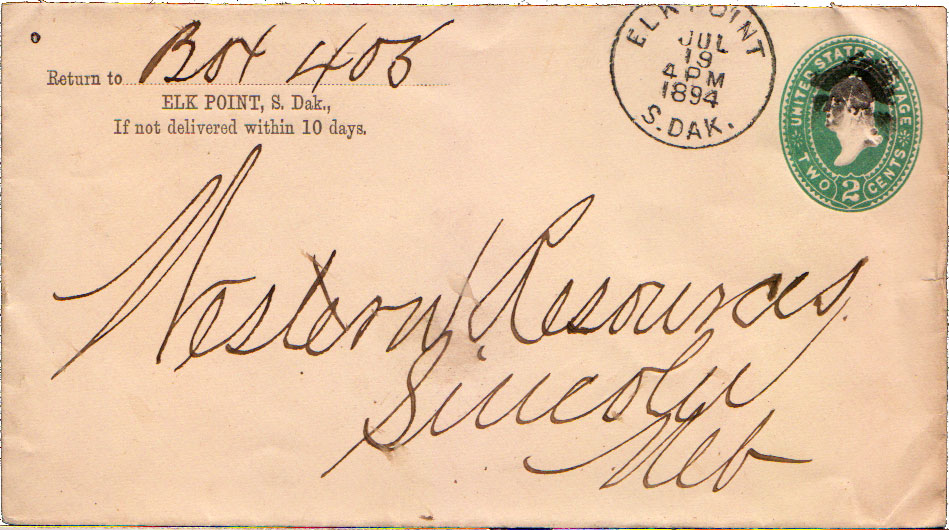 Return to Box 405
ELK POINT, S. Dak.,
If not delivered within 10 days.
ELK POINT
JUL
19
4 PM
1894
S. DAK.
UNITED STATES POSTAGE
TWO 2 CENTS
Western Resources
Lincoln
Neb